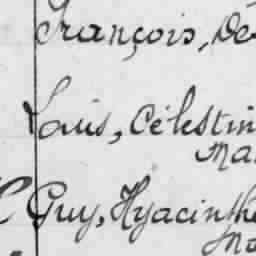 François, Dé
Louis, Célestin
Ma
Guy, Hyacinthe
Ma